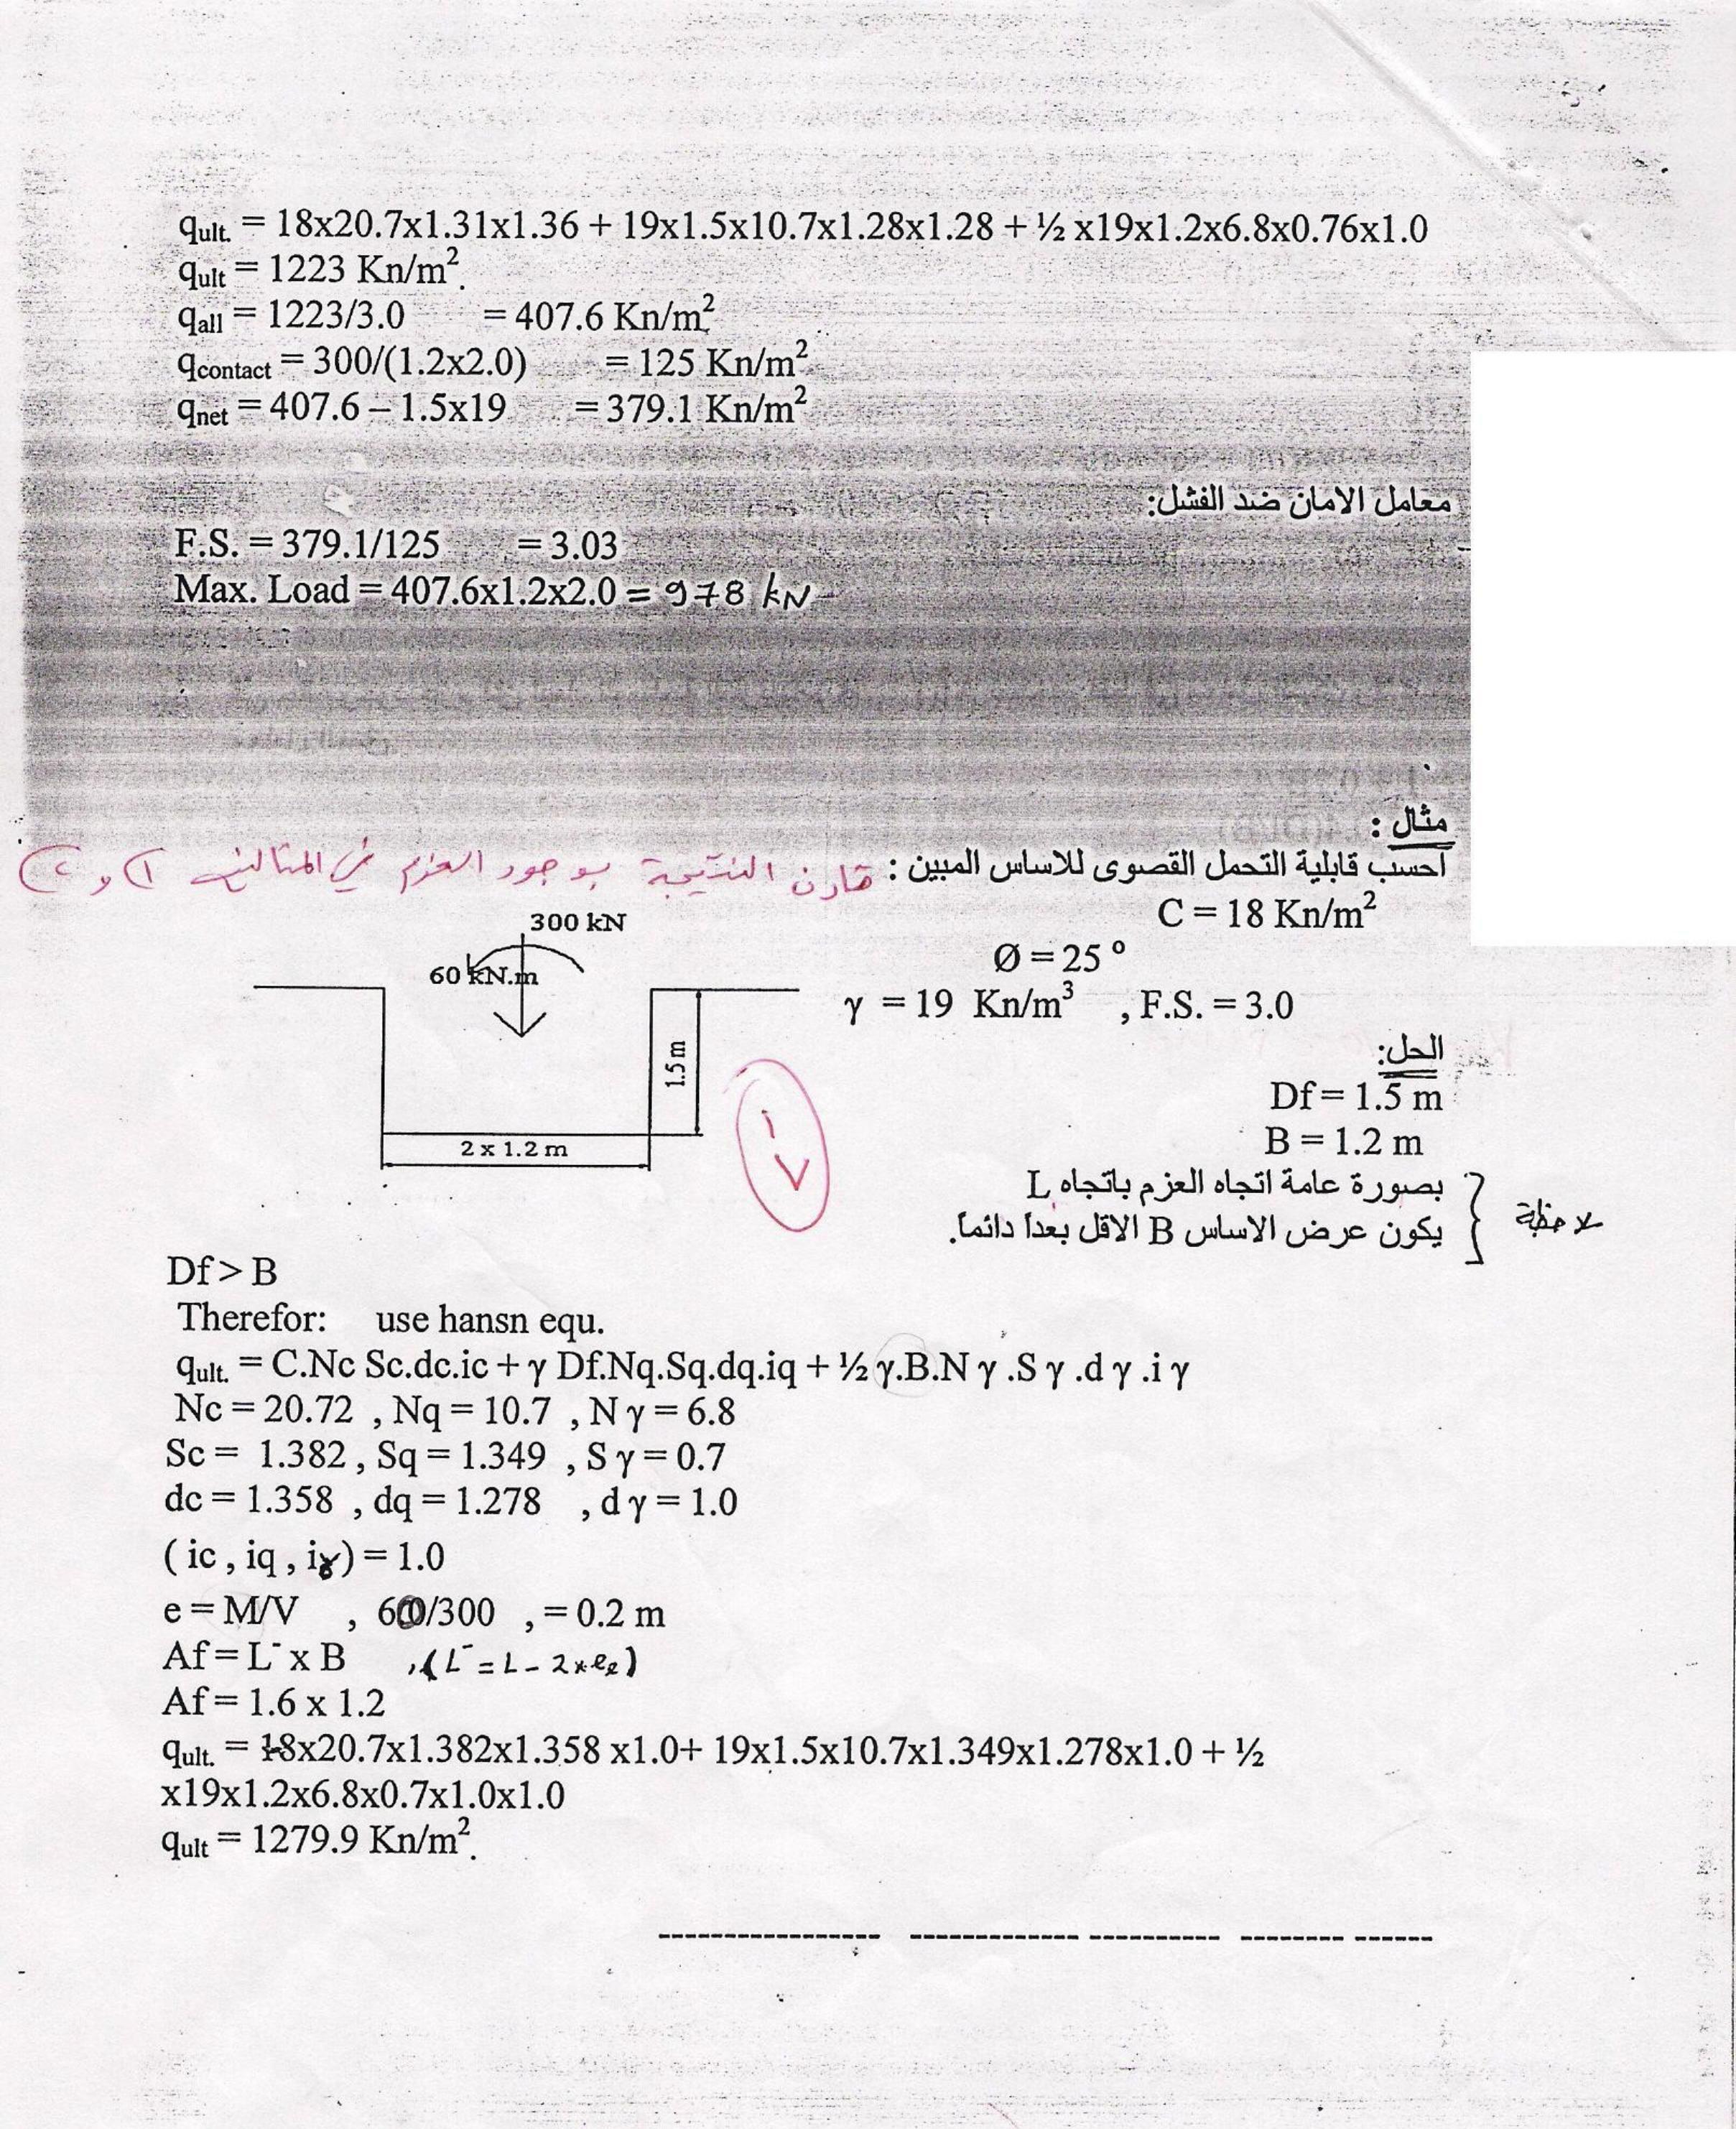 qult. = 18x20.7x1.31x1.36 + 19x1.5x10.7x1.28x1.28 + ½ x19x1.2x6.8x0.76x1.0
qult = 1223 Kn/m².
qall = 1223/3.0 = 407.6 Kn/m².
qcontact = 300/(1.2x2.0) = 125 Kn/m²
qnet = 407.6 – 1.5x19 = 379.1 Kn/m²
معامل الامان ضد الفشل:
F.S. = 379.1/125 = 3.03
Max. Load = 407.6x1.2x2.0 = 978 kN
مثال :
احسب قابلية التحمل القصوى للاساس المبين : قارن النتيجة بوجود العزم في المثالين ١ و ٢
C = 18 Kn/m²
Ø = 25 º
γ = 19 Kn/m³ , F.S. = 3.0
300 kN
60 kN.m
1.5 m
2 x 1.2 m
١
٧
الحل:
Df = 1.5 m
B = 1.2 m
بصورة عامة اتجاه العزم باتجاه L
يكون عرض الاساس B الاقل بعدا دائما.
ملاحظة
Df > B
Therefor: use hansn equ.
qult. = C.Nc Sc.dc.ic + γ Df.Nq.Sq.dq.iq + ½ γ.B.N γ .S γ .d γ .i γ
Nc = 20.72 , Nq = 10.7 , N γ = 6.8
Sc = 1.382 , Sq = 1.349 , S γ = 0.7
dc = 1.358 , dq = 1.278 , d γ = 1.0
( ic , iq , iγ ) = 1.0
e = M/V , 60/300 , = 0.2 m
Af = L⁻ x B , (L⁻ = L - 2 x eℓ)
Af = 1.6 x 1.2
qult. = 18x20.7x1.382x1.358 x1.0+ 19x1.5x10.7x1.349x1.278x1.0 + ½
x19x1.2x6.8x0.7x1.0x1.0
qult = 1279.9 Kn/m².